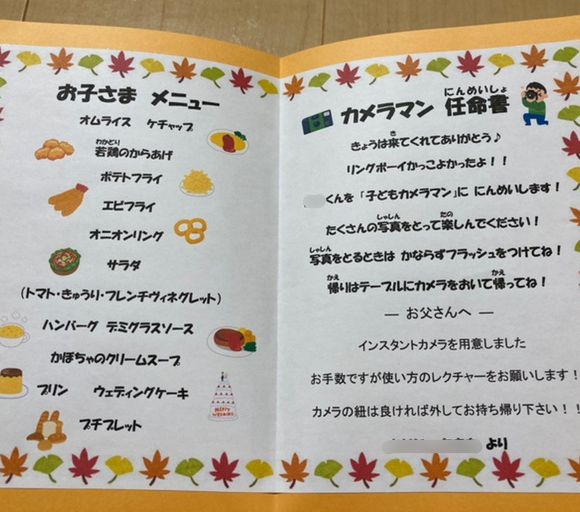 お子さま メニュー
オムライス ケチャップ
わかどり
若鶏のからあげ
ポテトフライ
エビフライ
オニオンリング
サラダ
(トマト・きゅうり・フレンチヴィネグレット)
ハンバーグ デミグラスソース
かぼちゃのクリームスープ
プリン ウェディングケーキ
プチブレット
にんめいしょ
カメラマン 任命書
き
きょうは来てくれてありがとう♪
リングボーイかっこよかったよ！！
くんを「子どもカメラマン」に にんめいします！
しゃしん たの
たくさんの写真をとって楽しんでください！
しゃしん
写真をとるときは かならずフラッシュをつけてね！
かえ かえ
帰りはテーブルにカメラをおいて帰ってね！
― お父さんへ ―
インスタントカメラを用意しました
お手数ですが使い方のレクチャーをお願いします！
カメラの紐は良ければ外してお持ち帰り下さい！！
より